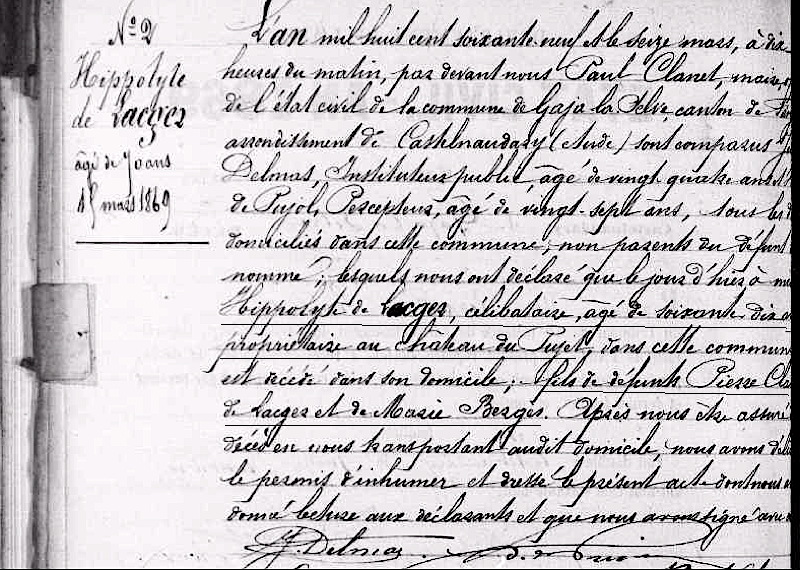 N° 2
Hippolyte
de Lacger
âgé de 70 ans
15 mars 1869
L'an mil huit cent soixante neuf et le seize mars, à dix
heures du matin, par devant nous Paul Clanet, maire,
de l'état civil de la commune de Gaja la Selve, canton de
arrondissement de Castelnaudary (Aude) sont comparus
Delmas, Instituteur public, âgé de vingt quatre ans et
de Pujol, Percepteur, âgé de vingt-sept ans, tous les d
domiciliés dans cette commune, non parents du défunt
nommé; lesquels nous ont déclaré que le jour d'hier à
Hippolyte de Lacger, célibataire, âgé de soixante dix
propriétaire au château du Pujet, dans cette commune
est décédé dans son domicile; fils de défunts Pierre Cla
de Lacger et de Marie Bergès. Après nous être assuré
décès en nous transportant audit domicile, nous avons dél
le permis d'inhumer et dressé le présent acte dont nous
donné lecture aux déclarants et que nous avons signé avec
Delmas